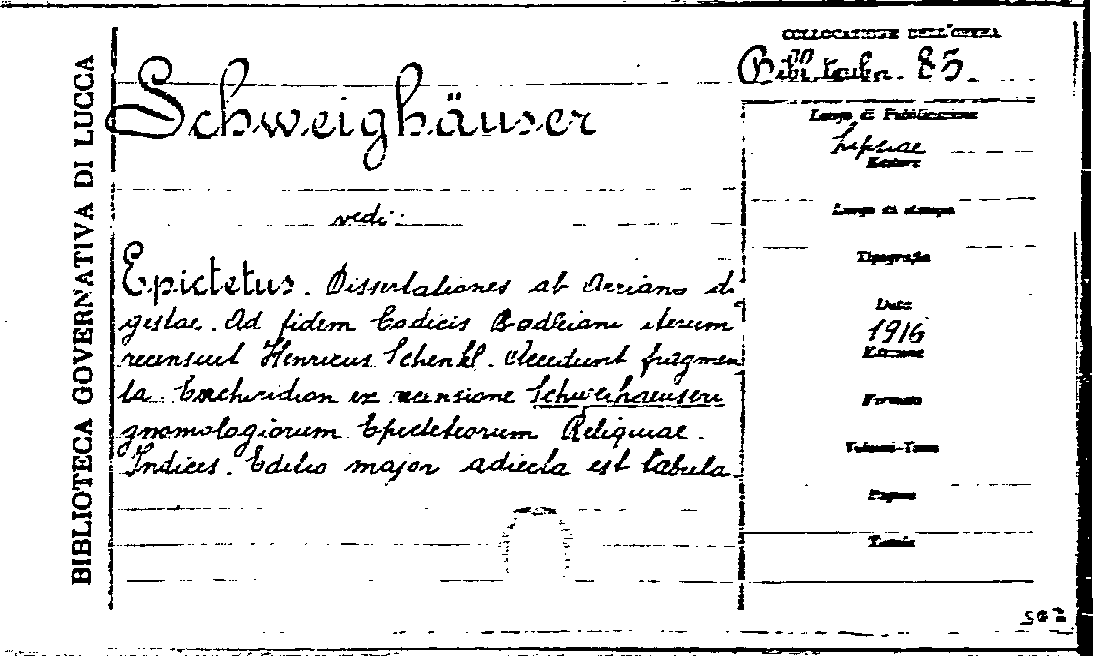 BIBLIOTECA GOVERNATIVA DI LUCCA
Schweighäuser
vedi:
Epictetus. Dissertationes ab Arriano di-
gestae. Ad fidem Codicis Bodleiani iterum
recensuit Henricus Schenkl. Accedunt fragmen
ta. Enchiridion ex recensione Schweihaeuseri
gnomologiorum Epicteteorum Reliquiae.
Indices. Editio major adiecta est tabula.
COLLOCAZIONE DELL'OPERA
Bibl. Teubn. 85.
Luogo di Pubblicazione
Lipsiae
Editore
Luogo di stampa
Tipografia
Data
1916
Edizione
Formato
Volumi-Tomi
Pagine
Tavole